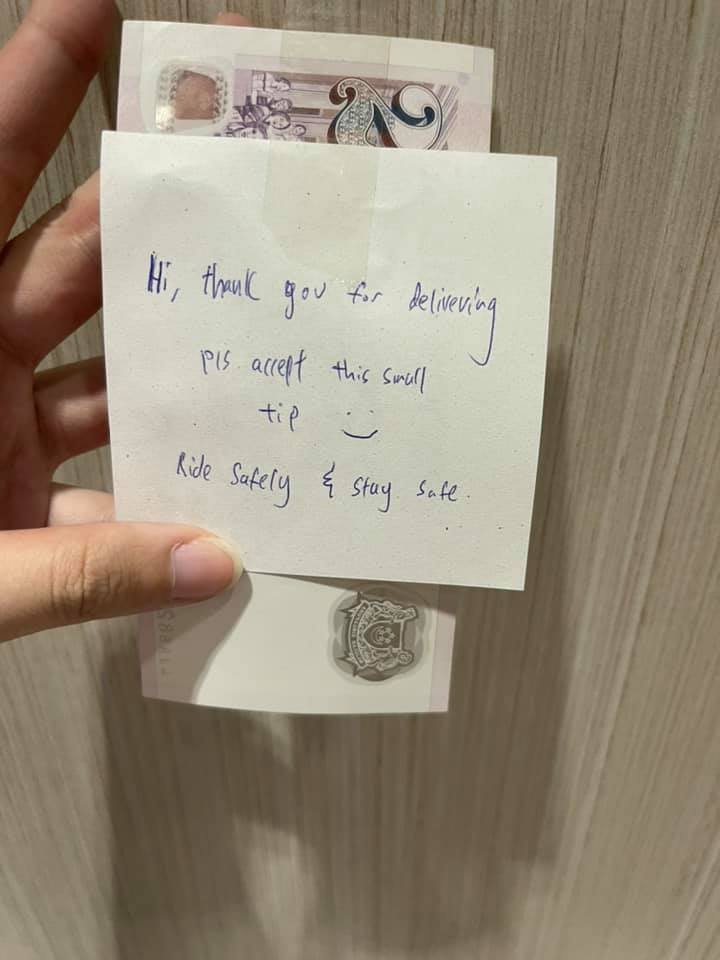 2
Hi, thank you for delivering
pls accept this small
tip :)
Ride safely & stay safe.